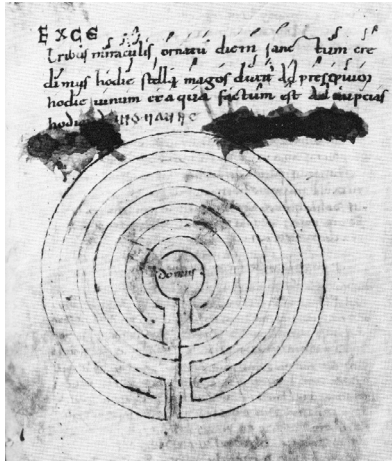 EXCE
Tribus miraculis ornatū diem sanc tum cre
dimus hodie stella magos duxit ad presepium
hodie uinum exaqua factum est ad nupcias
hodie
domus